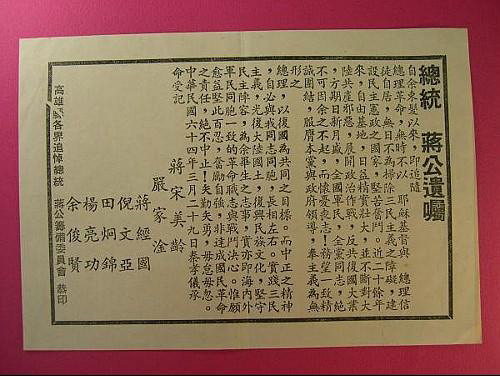 總統 蔣公遺囑
自余束髮以來,即追隨
總理革命,無時不以 耶穌基督與 總理信
徒自居,無日不為掃除三民主義之障礙,建
設民主憲政之國家,堅苦奮鬥。近二十餘年
來,自由基地,日益精實壯大,並不斷對大
陸共產邪惡,展開政治作戰;反共復國大業
,方期日新月盛,全國軍民,全黨同志,絕
不可因余之不起,而懷憂喪志!務望一致精
誠團結,服膺本黨與政府領導,奉主義為無
形之
總理,以復國為共同之目標。而中正之精神
,自必與我同志同胞,長相左右。實踐三民
主義,光復大陸國土,復興民族文化,堅守
民主陣容,為余畢生之志事,實亦即海內外
軍民同胞一致的革命職志與戰鬥決心。惟願
愈益堅此百忍,奮勵自強,非達成國民革命
之責任,絕不中止!矢勤矢勇,毋怠毋忽。
中華民國六十四年三月二十九日秦孝儀承
命受記
蔣宋美齡
嚴家淦
蔣經國
倪文亞
田炯錦
楊亮功
余俊賢
高雄各界追悼總統
蔣公籌備委員會 恭印